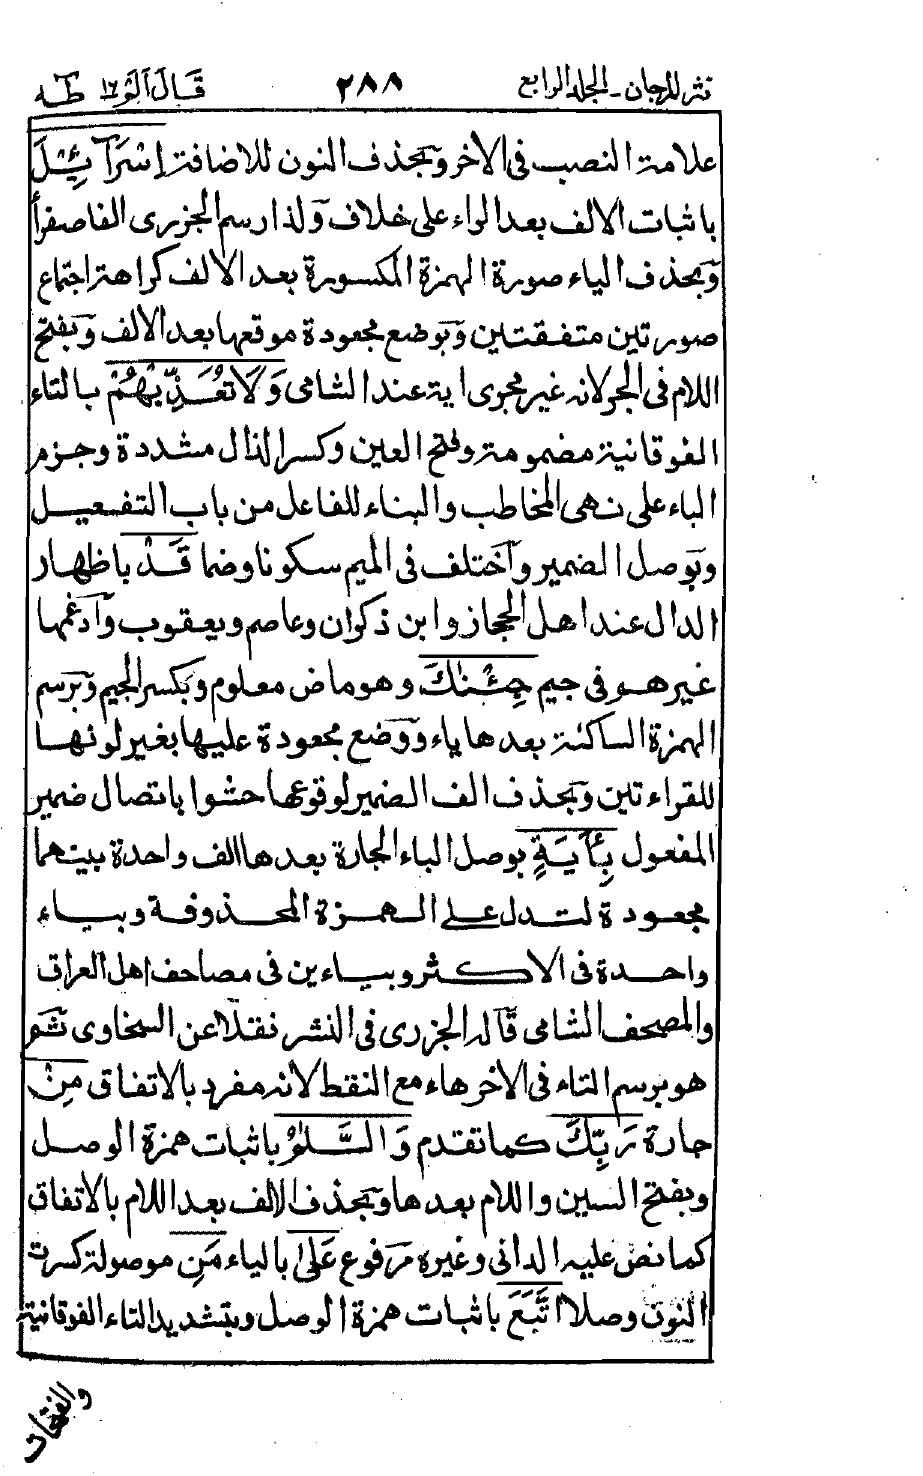 نثر المرجان ـ المجلد الرابع ٢٨٨ قَالَ أَلَمْ ١٦ طٰهٰ
علامة النصب فى الاٰخر وَبحذف النون للاضافة إِسْرَآءِيْلَ
باثبات الالف بعد الراء على خلاف وَلذا رسم الجزرى الفا صفرا
وَبحذف الياء صورة الهمزة المكسورة بعد الالف كراهة اجتماع
صورتين متفقتين وَبوضع مجعودة موقعها بعد الالف وَبفتح
اللام فى الجر لانه غير مجرى اية عند الشامى وَلَا تُعَذِّبْهُمْ بالتاء
الفوقانية مضمومة وفتح العين وكسر الذال مشددة وجزم
الباء على نهى المخاطب والبناء للفاعل من باب التفعيل
وَبوصل الضمير وَاختلف فى الميم سكونا وضما قَدْ باظهار
الدال عند اهل الحجاز وابن ذكوان وعاصم ويعقوب وَادغمها
غيرهم فى جيم جِئْنٰكَ وهو ماض معلوم وبكسر الجيم وَبرسم
الهمزة الساكنة بعدها ياء وَوضع مجعودة عليها بغير لونها
للقراءتين وَبحذف الف الضمير لوقوعها حشوا باتصال ضمير
المفعول بِئَايَةٍ بوصل الباء الجارة بعدها الف واحدة بينهما
مجعودة لتدل على الهمزة المحذوفة وبياء
واحدة فى الاكثر وبياءين فى مصاحف اهل العراق
والمصحف الشامى قَاله الجزرى فى النشر نقلا عن السخاوى ثم
هو برسم التاء فى الاٰخر هاء مع النقط لانه مفرد بالاتفاق مِنْ
جارة رَبِّكَ كما تقدم وَالسَّلٰمُ باثبات همزة الوصل
وبفتح السين واللام بعدها وَبحذف الالف بعد اللام بالاتفاق
كما نص عليه الدانى وغيره مرفوع عَلٰى بالياء مَنِ موصولة كسرت
النون وصلا اتَّبَعَ باثبات همزة الوصل وبتشديد التاء الفوقانية
والفتحات